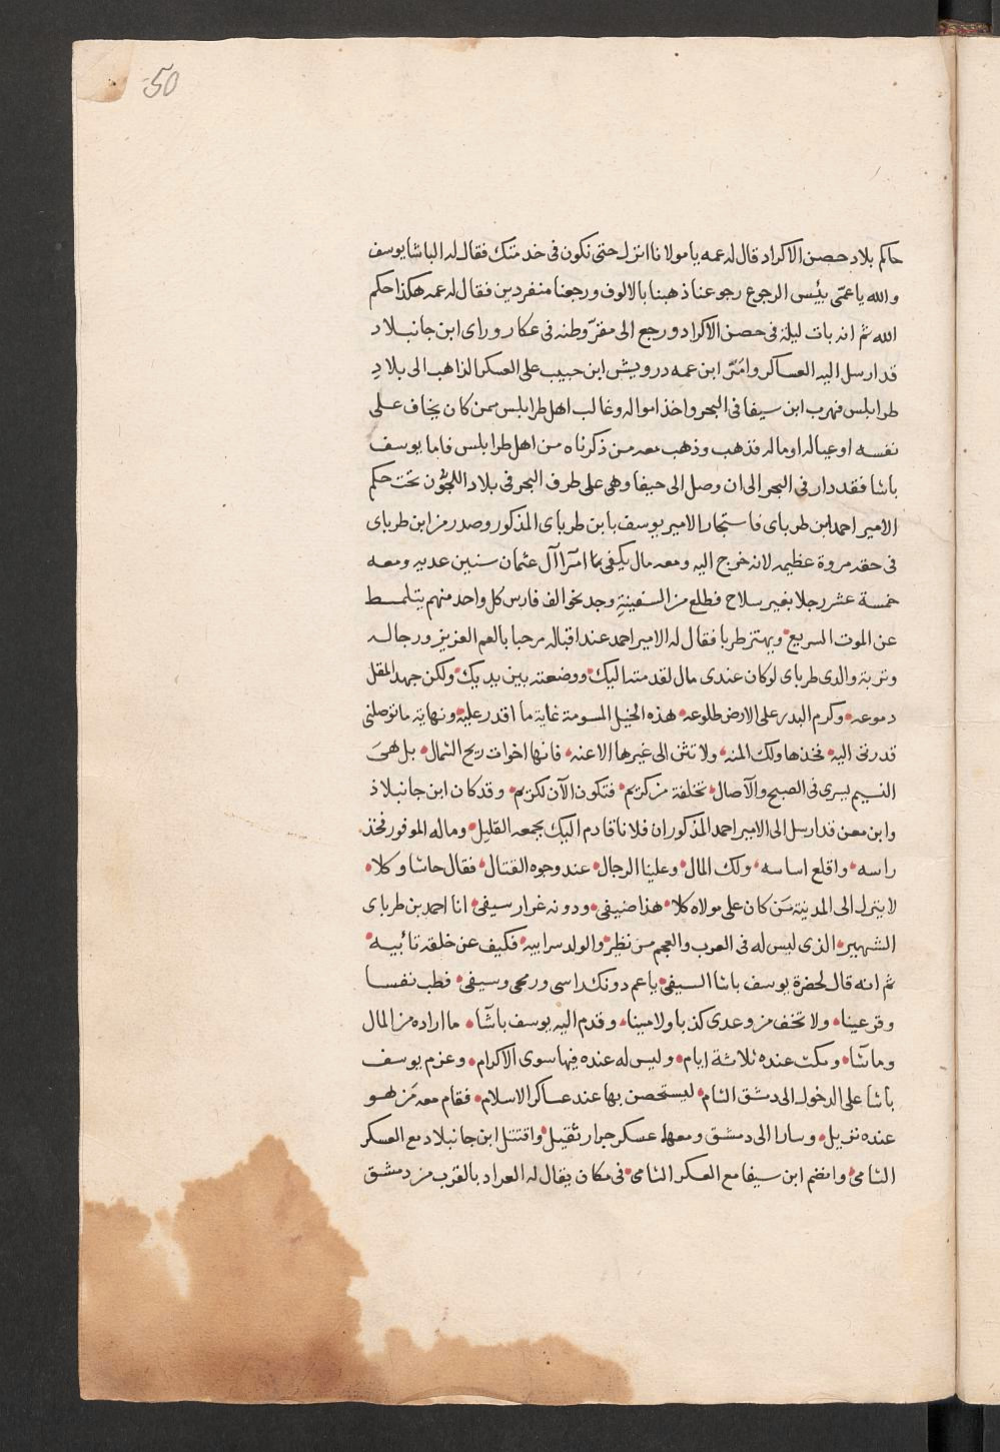 50
حاكم بلاد حصن الاكراد قال له عمه يا مولانا انزل حتى نكون فى خدمتك فقال له الباشا يوسف
والله يا عمّى بئيس الرجوع رجوعنا ذهبنا بالالوف ورجعنا منفردين فقال له عمه هكذا حكم
الله ثم انه بات ليلة فى حصن الاكراد ورجع الى مقرّ وطنه فى عكار وراى ابن جانبلاد
قد ارسل اليه العساكر وامّر ابن عمه درويش ابن حبيب على العسكر الذاهب الى بلادِ
طرابلس فهرب ابن سيفا فى البحر واخذ امواله وغالب اهل طرابلس ممن كان يخاف على
نفسه او عياله او ماله فذهب وذهب معه من ذكرناه من اهل طرابلس فاما يوسف
باشا فقد دار فى البحر الى ان وصل الى حيفا وهى على طرف البحر فى بلاد اللجّون تحت حكم
الامير احمد ابن طرباى فاستجار الامير يوسف بابن طرباى المذكور وصدر من ابن طرباى
فى حقه مروة عظيمه لانه خرج اليه ومعه مال يكفى امرآ آل عثمان سنين عديه ومعه
خمسة عشر رجلا بغير سلاح فطلع من السفينةِ وجد نحو الف فارس كل واحد منهم يتلمظ
عن الموت السريع ويهتز طربا فقال له الامير احمد عند اقباله مرحبا بالعم العزيز ورجاله
وتربة والدى طرباى لو كان عندى مال لقدمته اليك ووضعته بين يديك ولكن جهد المقل
دموعه وكرم البدر على الارض طلوعه هذه الخيل المسومة غاية ما اقدر عليه ونهاية ما توصلنى
قدرتى اليه فخذها ولك المنه ولا تثن الى غيرها الاعنه فانها اخوات ريح الشمال بل هىَ
النسيم يسرى فى الصبح والآصال تخلفة من كريم فتكون الآن لكريم وقد كان ابن جانبلاذ
وابن معن قد ارسل الى الامير احمد المذكور ان فلانا قادم اليك بجمعه القليل وماله الموفور فخذ
راسه واقلع اساسه ولك المال وعلينا الرجال عند وجوه القتال فقال حاشا وكلا
لا ينزل الى المدينة مَن كان على مولاه كلا هذا ضيفى ودونه غرار سيفى انا احمد بن طرباى
الشهير الذى ليس له فى العرب والعجم من نظير والولد سر ابيه فكيف عن خلقه تأبيه
ثم انه قال لحضرة يوسف باشا السيفى يا عم دونك راسى ورمحى وسيفى فطب نفسا
وقر عينا ولا تخف من وعدى كذبا ولا مينا وقدم اليه يوسف باشا ما اراده من المال
وما شا ومكث عنده ثلاثة ايام وليس له عنده فيها سوى الاكرام وعزم يوسف
باشا على الدخول الى دمشق الشام ليستحصن بها عند عساكر الاسلام فقام معه مَن هو
عنده نزيل وسارا الى دمشق ومعهما عسكر جرار ثقيل واقتتل ابن جانبلاد مع العسكر
الشامى وانضم ابن سيفا مع العسكر الشامى فى مكان يقال له العراد بالقرب من دمشق